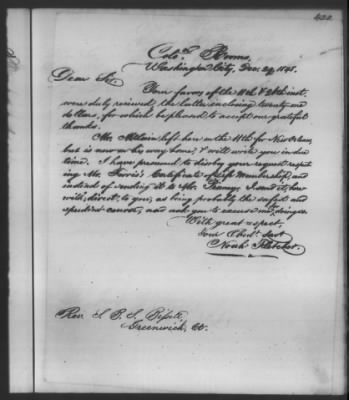 422
Col. Rooms,
Washington City, Dec. 29, 1848.
Dear Sir,
Your favors of the 11th & 26th inst.
were duly received, the latter enclosing twenty one
dollars, for which be pleased to accept our grateful
thanks.
Mr. McLain left here on the 11th for New Orleans,
but is now on his way home, & will write you in due
time. I have presumed to disobey your request respect-
ing Mr. Certificate of Life Membership, and
instead of sending it to Mr. I send it, here
with, direct to you, as being probably the safest and
speediest conveyance, and ask you to excuse my doing so.
With great respect,
Your Obdt. Servt
Noah Fletcher.
Rev. S. B. S. Bissell,
Greenwich, Ct.